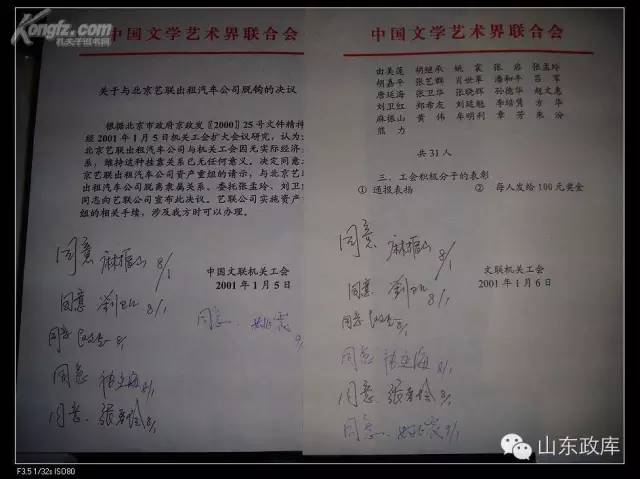 Kongfz.com
孔夫子旧书网
中国文学艺术界联合会
关于与北京艺联出租汽车公司脱钩的决议
根据北京市政府京政发〖2000〗25号文件精神
经2001年1月5日机关工会扩大会议研究，认为：
北京艺联出租汽车公司与机关工会因无实际经济
系，维持这种挂靠关系已无任何意义。决定同意：
京艺联出租汽车公司资产重组的请示，与北京艺
出租汽车公司脱离隶属关系。委托张孟玲、刘卫
同志向艺联公司宣布此决议。艺联公司实施资产
组的相关手续，涉及我方时可以办理。
同意 麻振山 8/1
中国文联机关工会
2001年1月5日
同意 刘卫红 8/1
同意 姚震
同意 8/1
同意 8/1
同意 张孟玲 8/1
中国文学艺术界联合会
由美莲 胡继承 姚震 张岩 张孟玲
胡嘉平 张艺辉 肖世革 潘和平 吕军
唐延海 张卫华 张晓辉 孙德华 赵文惠
刘卫红 郑希友 刘延魁 李培隽 方华
麻振山 黄伟 牟明利 章芳 朱汾
熊力
共31人
三、工会积极分子的表彰
① 通报表扬 ② 每人发给100元奖金
同意 麻振山 8/1
文联机关工会
2001年1月6日
同意 刘卫红 8/1
同意 8/1
同意
同意 张孟玲 8/1
同意 姚震 8/1
山东政库
F3.5 1/32s ISO80